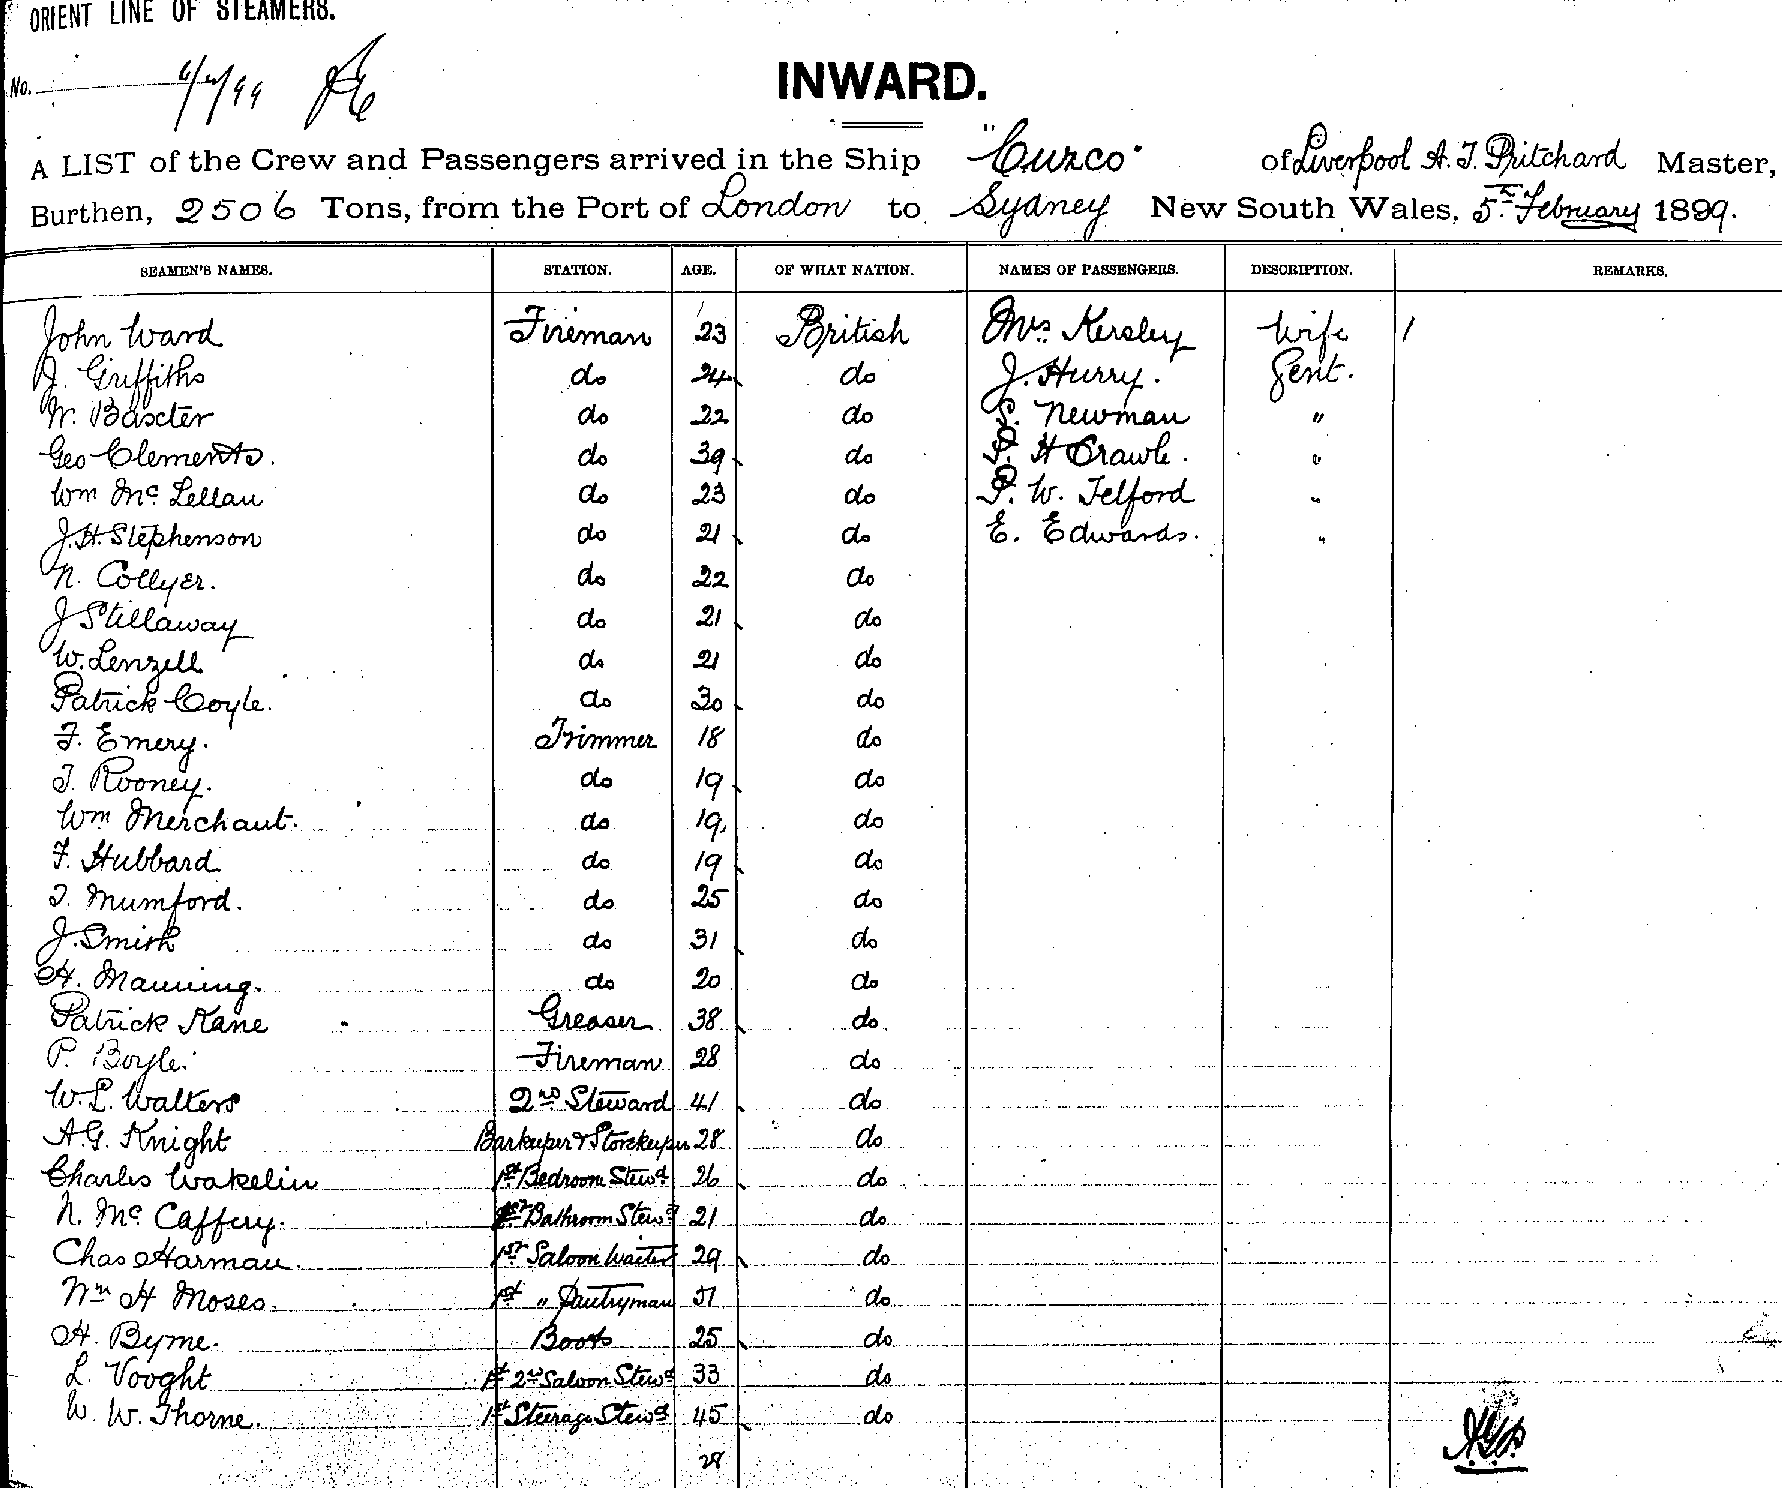 ORIENT LINE OF STEAMERS.
No.
INWARD.
A LIST of the Crew and Passengers arrived in the Ship "Cuzco" of Liverpool A. T. Pritchard Master,
Burthen, 2506 Tons, from the Port of London to Sydney New South Wales, 5th February 1899.
SEAMEN'S NAMES. STATION. AGE. OF WHAT NATION. NAMES OF PASSENGERS. DESCRIPTION. REMARKS.
John Ward Fireman 23 British Mrs. Kersley Wife 1
J. Griffiths do 24 do J. Hurry. Gent.
W. Baxter do 22 do S. Newman "
Geo Clements. do 39 do P. H Crawle. "
Wm Mc Lellan do 23 do P. W. Telford "
J. H. Stephenson do 21 do E. Edwards. "
N. Collyer. do 22 do
J Stillaway do 21 do
W. Lenzell do 21 do
Patrick Coyle. do 30 do
F. Emery. Trimmer 18 do
T. Rooney. do 19 do
Wm Merchant. do 19 do
F. Hubbard do 19 do
T. Mumford. do 25 do
J. Smith do 31 do
H. Manning. do 20 do
Patrick Kane Greaser 38 do
P. Boyle. Fireman 28 do
W. L. Walters 2nd Steward 41 do
A. G. Knight Barkeeper & Storekeeper 28 do
Charles Wakelin 1st Bedroom Stewd 26 do
N. Mc Caffery. 1st Bathroom Stewd 21 do
Chas Harman. 1st Saloon Waiter 29 do
Wm H Moses. 1st " Pantryman 51 do
H. Byrne. Boots 25 do
L. Vooght 2nd Saloon Stewd 33 do
W. W. Thorne. 1st Steerage Stewd 45 do
28